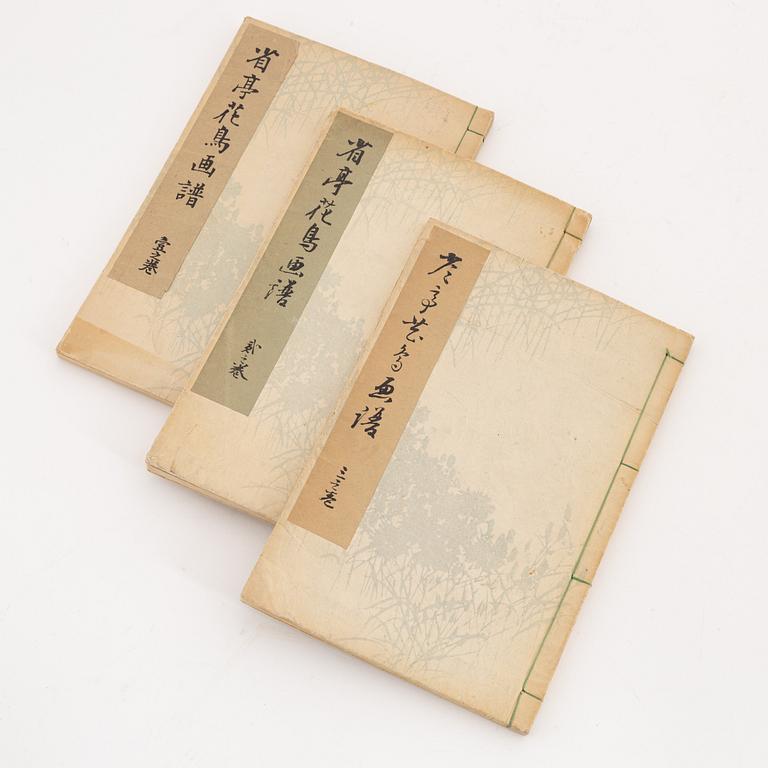 省亭花鳥画譜
壹之巻
省亭花鳥画譜
貳之巻
省亭花鳥画譜
三之巻